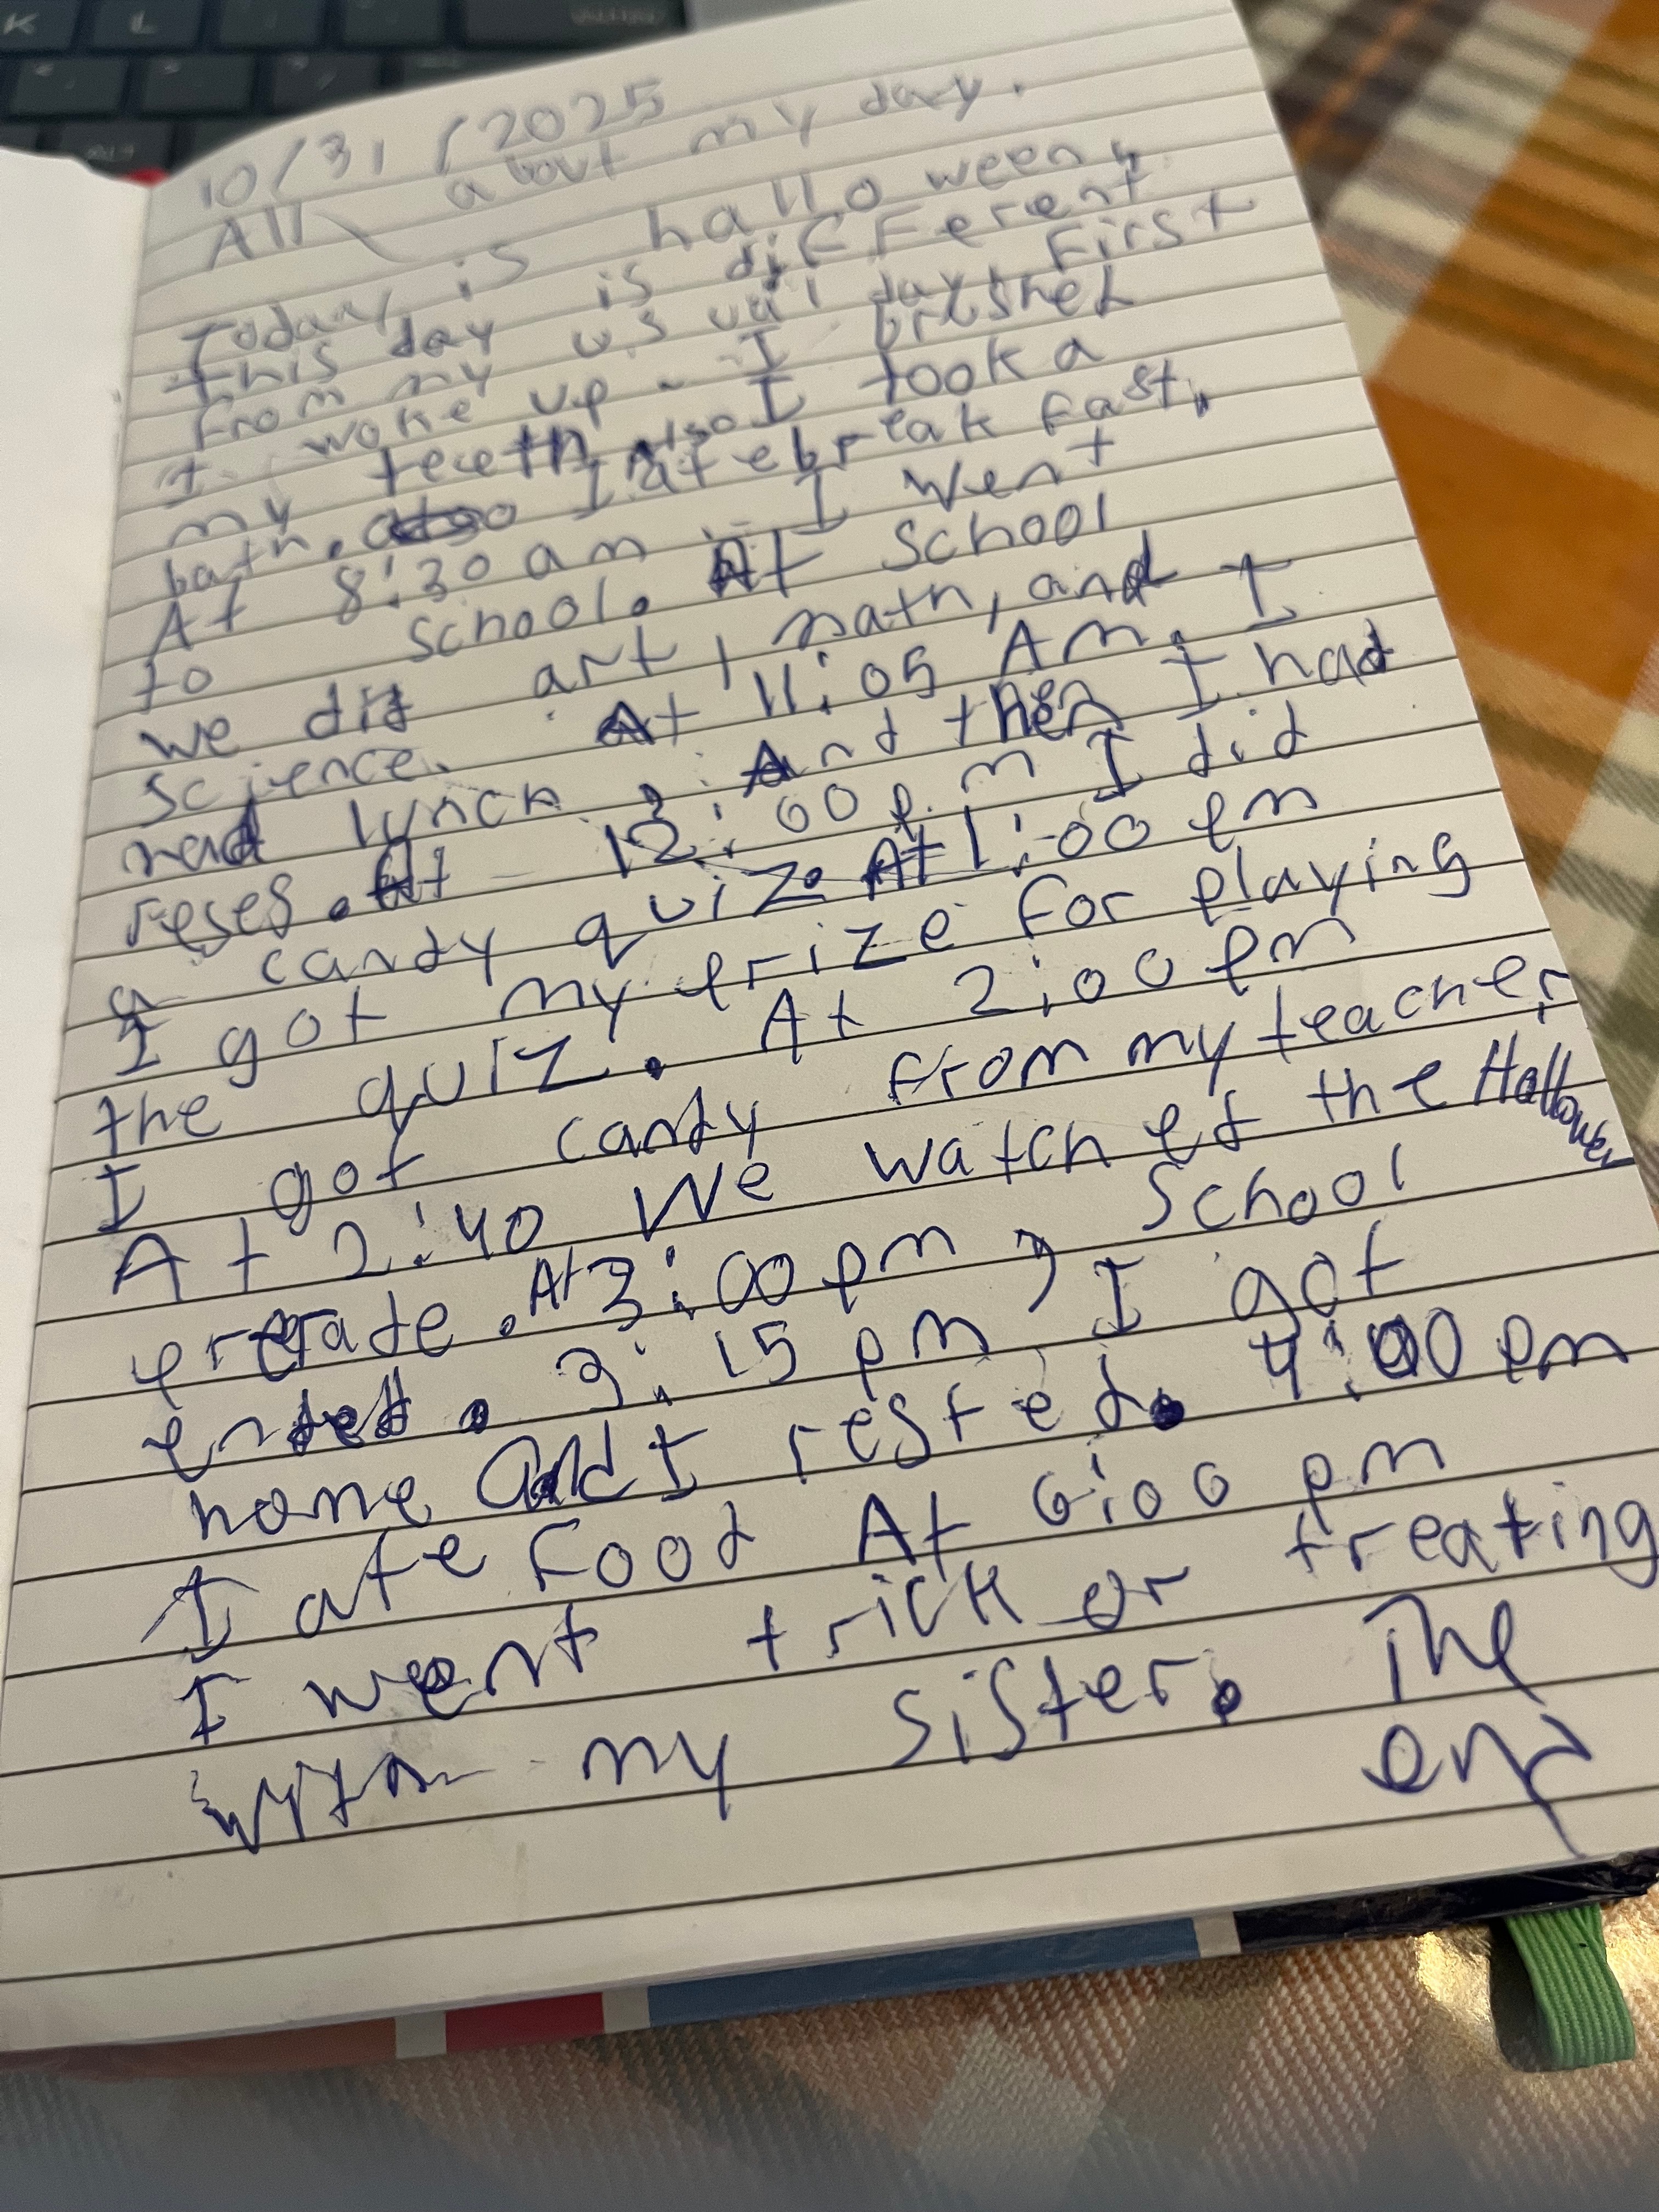 10/31/2025
All about my day.
Today is halloween,
this day is different
from my usual day. First
I woke up. I brushed
my teeth also I took a
bath. I ate breakfast.
At 8:30 am I went
to school. At school
we did art, math, and
science. At 11:05 Am. I
had lunch, And then I had
reses. At 12:00 p.m I did
a candy quiz. At 1:00 pm
I got my prize for playing
the quiz. At 2:00 pm
I got candy from my teacher
At 2:40 We watched the Hallowen
prerade. At 3:00 pm, school
ended. 3:15 pm, I got
home And I rested. 4:00 pm
I ate food At 6:00 pm
I went trick or treating
with my sister. The
end
K L
Alt